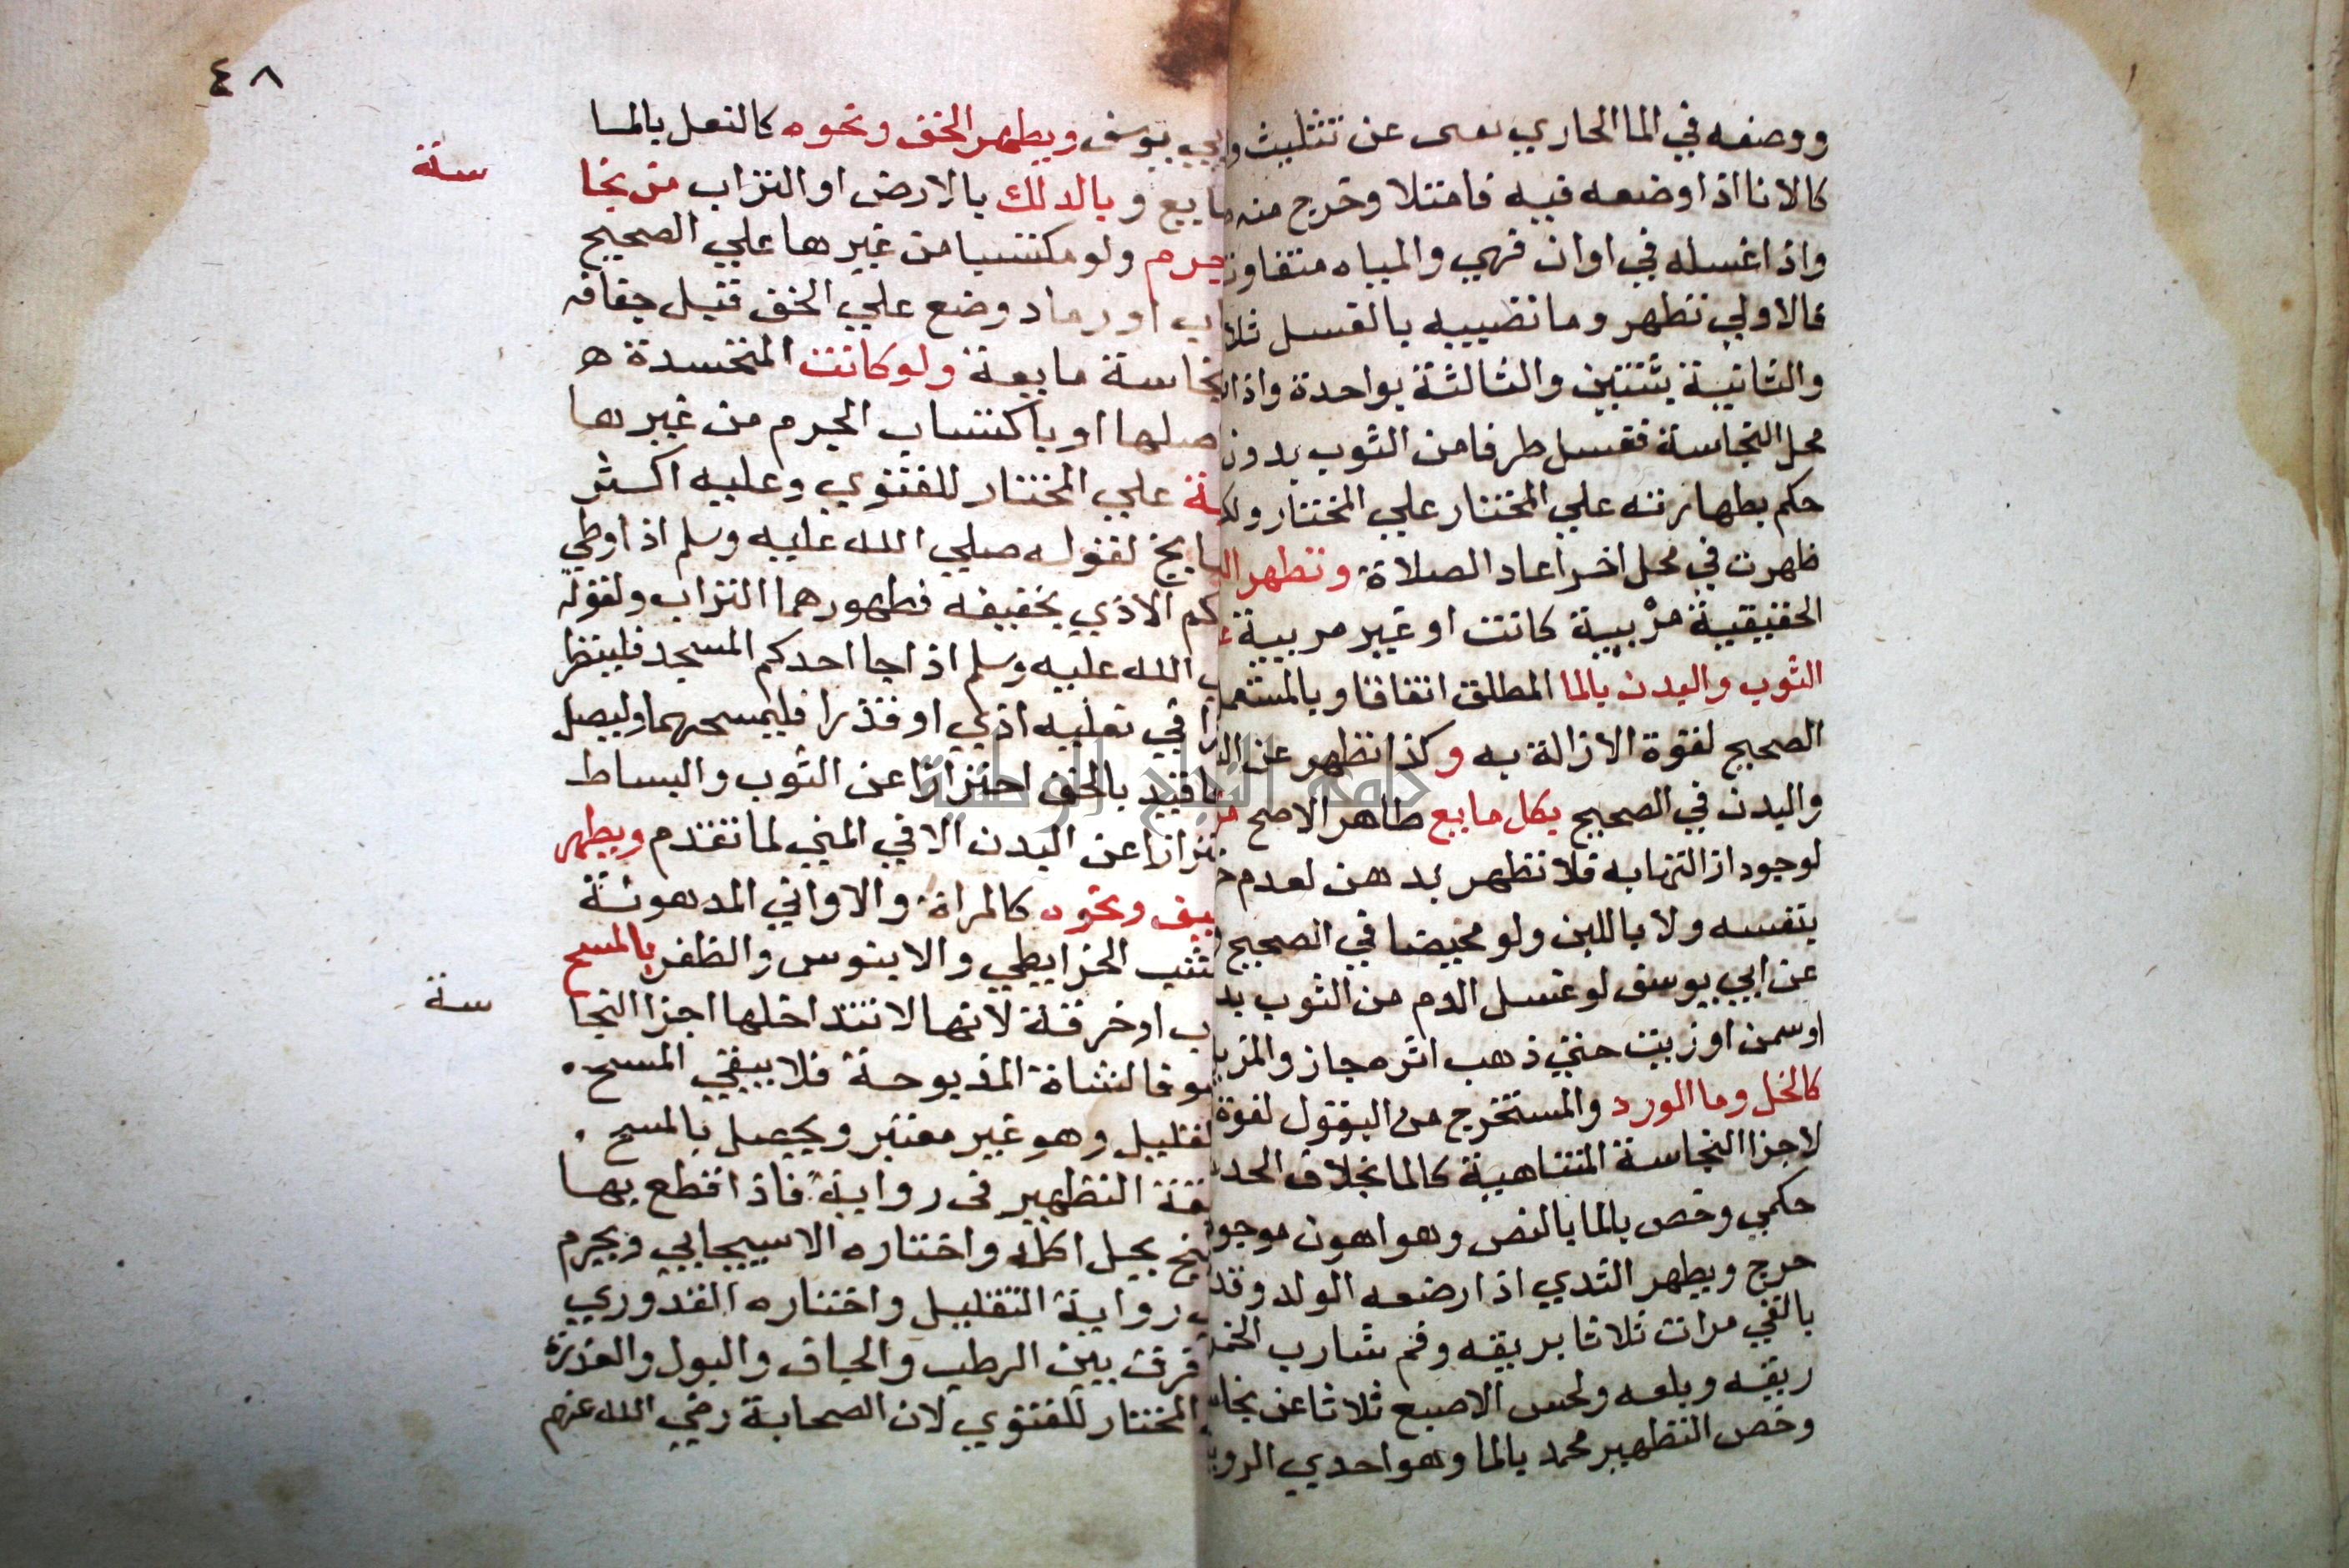 ووضعه في الما الجاري يغني عن تثليث
كالانا اذا وضعه فيه فامتلا وخرج منه
واذا غسله في اوان فهي والمياه متفاوت
فالاولي تطهر وما تصيبه بالغسل ثلا
والثانية بثنتين والثالثة بواحدة واذا
محل النجاسة فغسل طرفا من الثوب بدون
حكم بطهارته علي المختار علي المختار ولك
ظهرت في محل اخر اعاد الصلاة وتطهر ال
الحقيقية مرئيية كانت او غير مريية
الثوب والبدن بالما المطلق اتفاقا وبالمستعمل
الصحيح لقوة الازالة به وكذا تطهر عن ال
والبدن في الصحيح بكل مايع طاهر الاصح
لوجود ازالتها به فلا تطهر بدهن لعدم
بنفسه ولا باللبن ولو مخيضا في الصحيح
عن ابي يوسف لو غسل الدم من الثوب بد
اوسمن اوزيت حتي ذهب اثره جاز والمزيل
كالخل وما الورد والمستخرج من البقول لقوة
لاجزا النجاسة المتناهية كالما بخلاف الحد
حكمي وخص بالما بالنص وهو اهون موجود
حرج ويطهر الثدي اذا ارضعه الولد وقد
بالقي مرات ثلاثا بريقه وفم شارب الخمر
ريقه وبلعه ولحس الاصبع ثلاثا عن نجاس
وخص التطهير محمد بالما وهو احدي الرو
٤٨
وابي يوسف ويطهر الخف ونحوه كالنعل بالما
مايع وبالدلك بالارض او التراب من نجا
سة
جرم ولو مكتسبا من غيرها علي الصحيح
اب او رماد وضع علي الخف قبل جفافه
نجاسة مايعة ولو كانت المتجسدة ه
اصلها او باكتساب الجرم من غيرها
علي المختار للفتوي وعليه اكثر
ايخ لقوله صلي الله عليه وسلم اذا وطي
كم الاذي بخفيفه فطهورهما التراب ولقوله
الله عليه وسلم اذا جا احدكم المسجد فلينظر
في نعليه اذي او قذرا فليمسحهما وليصل
قيد بالخف احترازا عن الثوب والبساط
ترازا عن البدن الا في المني لما تقدم ويطهر
يف ونحوه كالمراة والاواني المدهونة
شب الخرايطي والابنوس والظفر بالمسح
ب او خرقة لانها لا تتداخلها اجزا النجا
سة
فالشاة المذبوحة فلا يبقي المسح
لقليل وهو غير معتبر ويحصل بالمسح
التطهير في رواية فاذا قطع بها
يخ يحل اكله واختاره الاسبيجابي ويحرم
رواية التقليل واختاره القدوري
فرق بين الرطب والجاف والبول والعذرة
المختار للفتوي لان الصحابة رضي الله عنهم
جامعة النجاح الوطنية